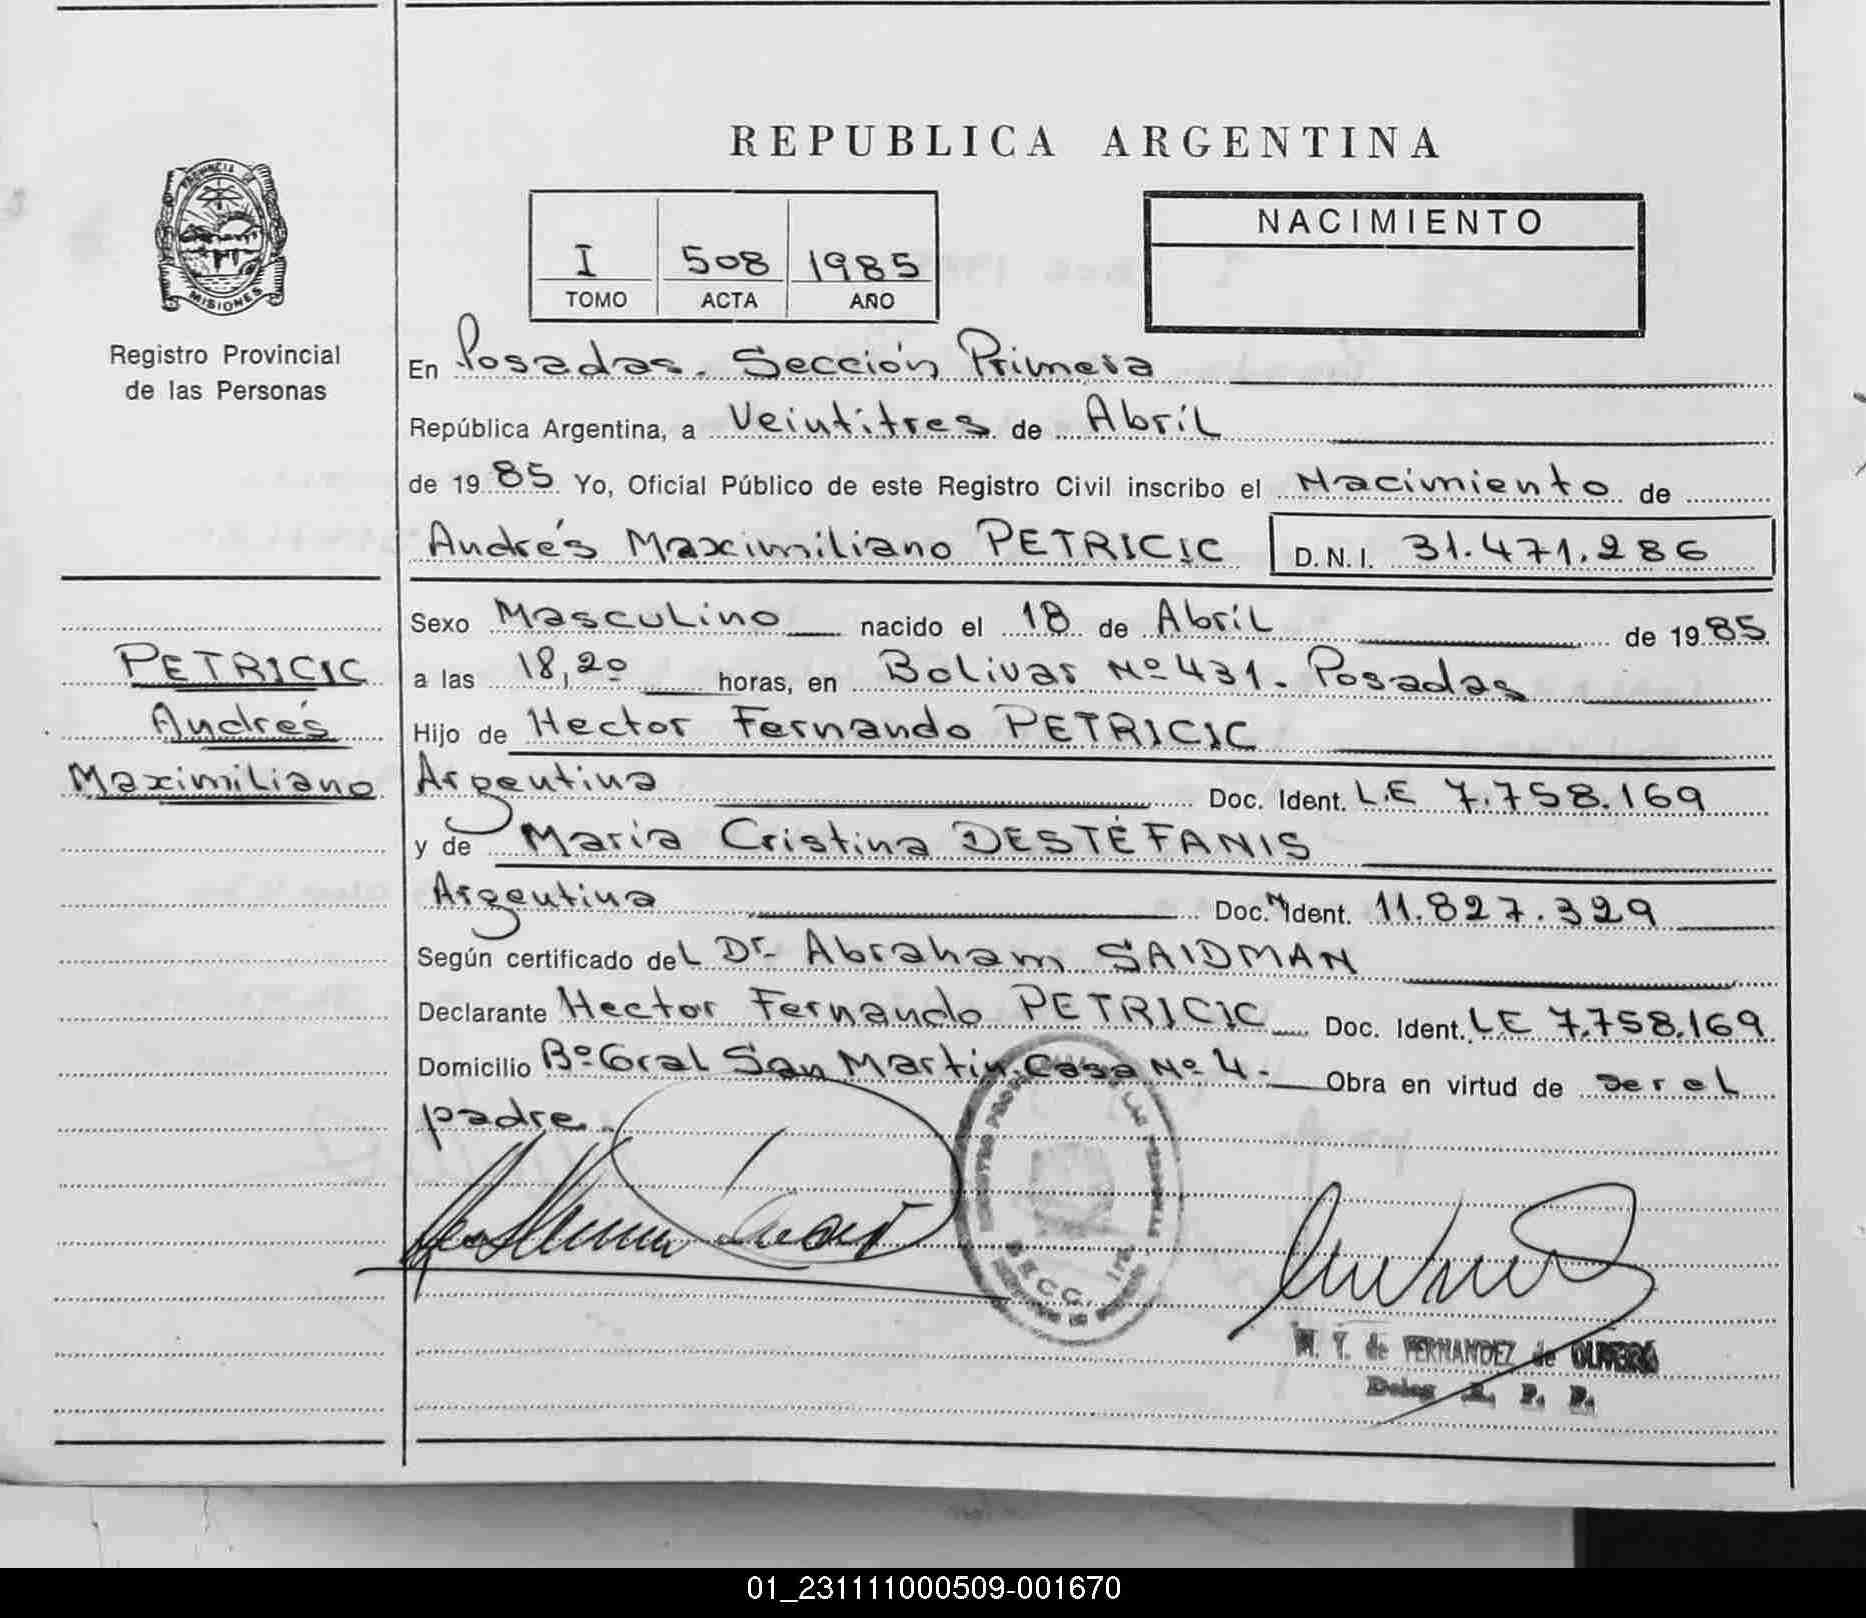 REPUBLICA ARGENTINA
PROVINCIA DE
MISIONES
Registro Provincial
de las Personas
I 508 1985
TOMO ACTA AÑO
NACIMIENTO
En Posadas. Sección Primera
República Argentina, a Veintitres de Abril
de 1985 Yo, Oficial Público de este Registro Civil inscribo el Nacimiento de
Andrés Maximiliano PETRICIC D.N.I. 31.471.286
PETRICIC
Andrés
Maximiliano
Sexo Masculino nacido el 18 de Abril de 1985
a las 18,20 horas, en Bolivar Nº 431. Posadas
Hijo de Hector Fernando PETRICIC
Argentina Doc. Ident. L.E 7.758.169
y de Maria Cristina DESTÉFANIS
Argentina Doc. Ident. 11.827.329
Según certificado del Dr. Abraham SAIDMAN
Declarante Hector Fernando PETRICIC Doc. Ident. L.E 7.758.169
Domicilio Bº Gral San Martin. Casa Nº 4. Obra en virtud de ser el
padre.
SECC. 1ra.
M. Y. de FERNANDEZ de OLIVERO
Deleg R. P. P.
01_231111000509-001670